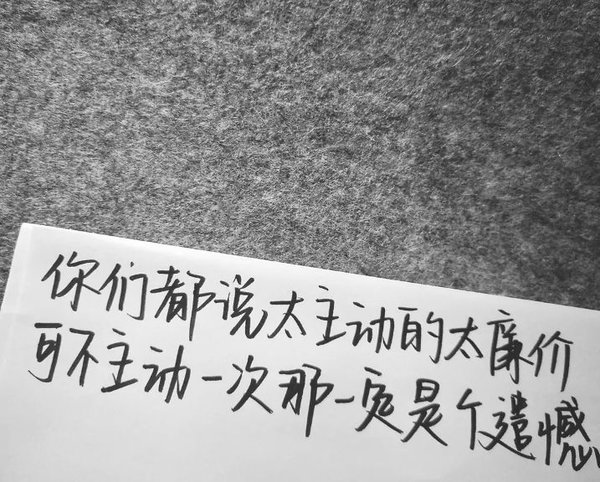 你们都说太主动的太廉价
可不主动一次那一定是个遗憾